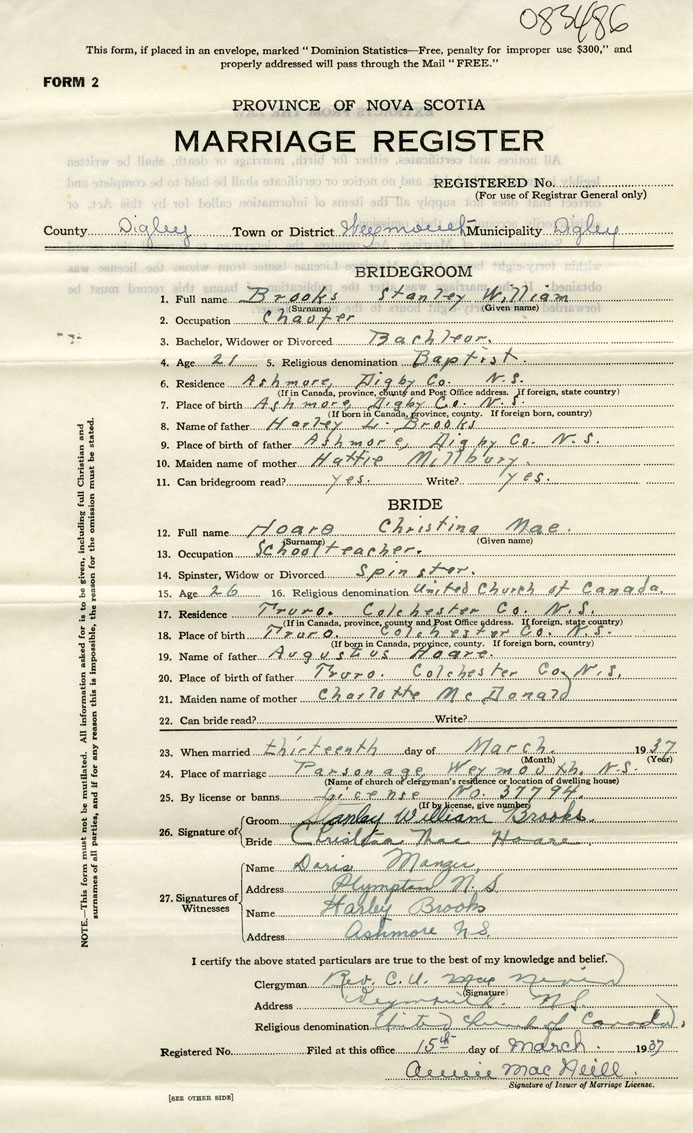 083486
This form, if placed in an envelope, marked "Dominion Statistics—Free, penalty for improper use $300," and
properly addressed will pass through the Mail "FREE."
FORM 2
PROVINCE OF NOVA SCOTIA
MARRIAGE REGISTER
REGISTERED No.
(For use of Registrar General only)
County Digby Town or District Weymouth Municipality Digby
BRIDEGROOM
1. Full name Brooks Stanley William
(Surname) (Given name)
2. Occupation Chaufer
3. Bachelor, Widower or Divorced Bachleor.
4. Age 21 5. Religious denomination Baptist.
6. Residence Ashmore, Digby Co. N.S.
(If in Canada, province, county and Post Office address. If foreign, state country)
7. Place of birth Ashmore, Digby Co. N.S.
(If born in Canada, province, county. If foreign born, country)
8. Name of father Harley L. Brooks
9. Place of birth of father Ashmore, Digby Co. N.S.
10. Maiden name of mother Hattie Millbury.
11. Can bridegroom read? yes. Write? yes.
BRIDE
12. Full name Hoare Christina Mae.
(Surname) (Given name)
13. Occupation Schoolteacher.
14. Spinster, Widow or Divorced Spinster.
15. Age 26 16. Religious denomination United Church of Canada.
17. Residence Truro. Colchester Co. N.S.
(If in Canada, province, county and Post Office address. If foreign, state country)
18. Place of birth Truro. Colchester Co. N.S.
(If born in Canada, province, county. If foreign born, country)
19. Name of father Augustus Hoare.
20. Place of birth of father Truro. Colchester Co. N.S.
21. Maiden name of mother Charlotte McDonald
22. Can bride read? Write?
23. When married thirteenth day of March. 1937
(Month) (Year)
24. Place of marriage Parsonage, Weymouth, N.S.
(Name of church or clergyman's residence or location of dwelling house)
25. By license or banns License No. 37794
(If by license, give number)
26. Signature of Groom Stanley William Brooks.
Bride Christina Mae Hoare.
27. Signatures of Witnesses
Name Doris
Address Plympton N.S
Name Harley Brooks
Address Ashmore N.S.
I certify the above stated particulars are true to the best of my knowledge and belief.
Clergyman Rev. C. U. Mac
(Signature)
Address Weymouth. N.S.
Religious denomination United Church of Canada.
Registered No. Filed at this office 15th day of March. 1937
Annie MacNeill.
Signature of Issuer of Marriage License.
[SEE OTHER SIDE]
NOTE.—This form must not be mutilated. All information asked for is to be given, including full Christian and
surnames of all parties, and if for any reason this is impossible, the reason for the omission must be stated.